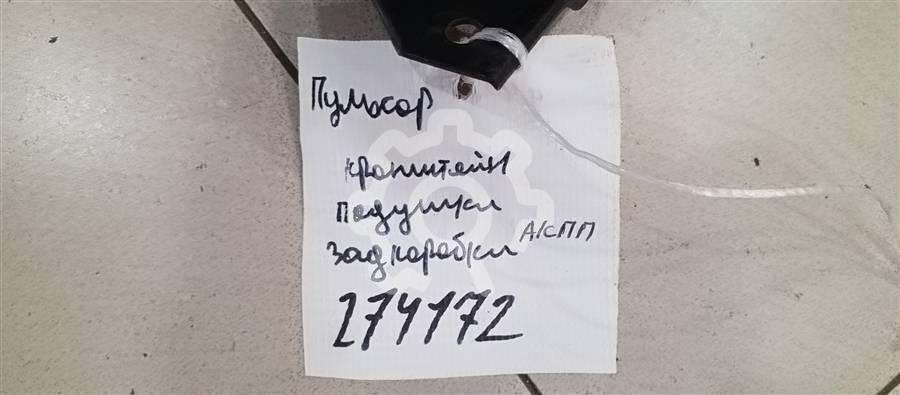 Пульсар
кронштейн
подушки
зад коробки АКПП
274172